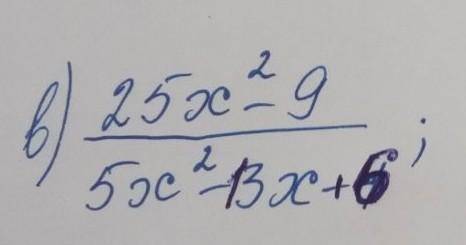 в) 25x² - 9
5x² - 13x + 6 ;